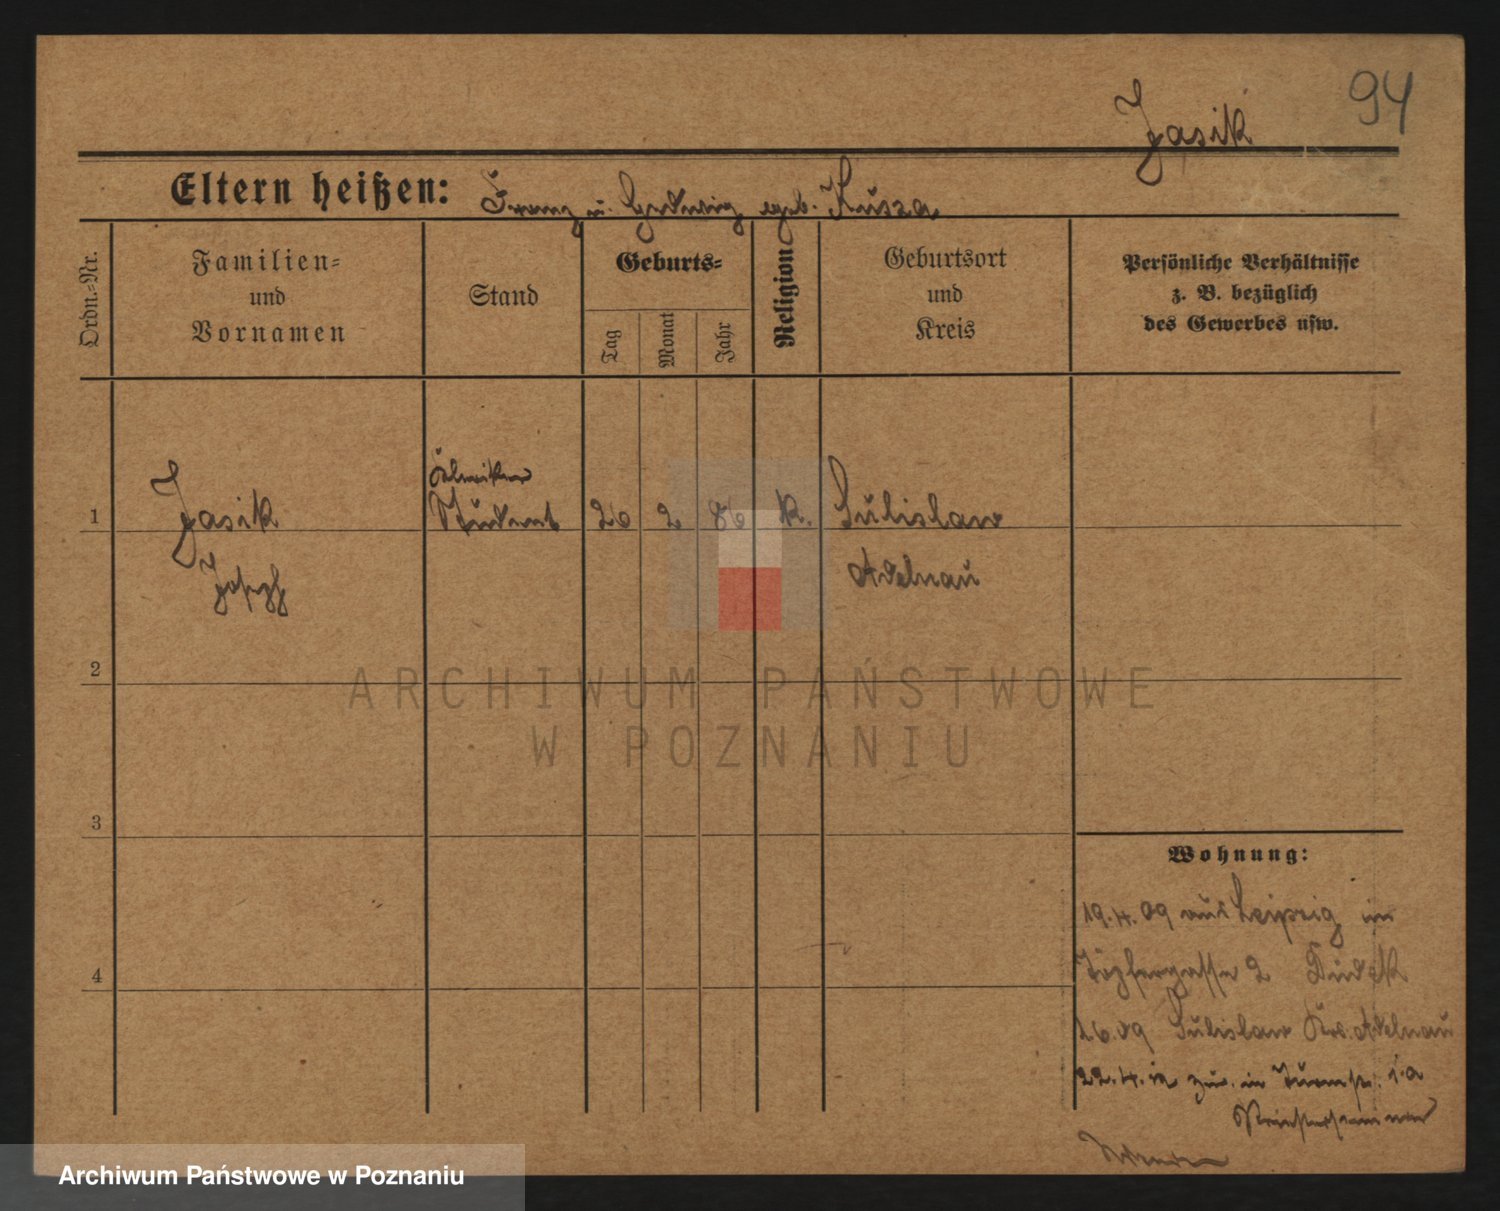 94
Jasik
Eltern heißen: Franz u. Hedwig geb. Kusza
Ordn.-Nr.
Familien-
und
Vornamen
Stand
Geburts-
Tag
Monat
Jahr
Religion
Geburtsort
und
Kreis
Persönliche Verhältnisse
z. B. bezüglich
des Gewerbes usw.
1 Jasik Student 26 2 86 k. Sulislaw
Joseph Adelnau
2
ARCHIWUM PAŃSTWOWE
W POZNANIU
3
4
Wohnung:
19.4.09 aus Leipzig in
Töpfergasse 2
Sulislaw Krs. Adelnau
22.4. in
Priesterseminar
Archiwum Państwowe w Poznaniu